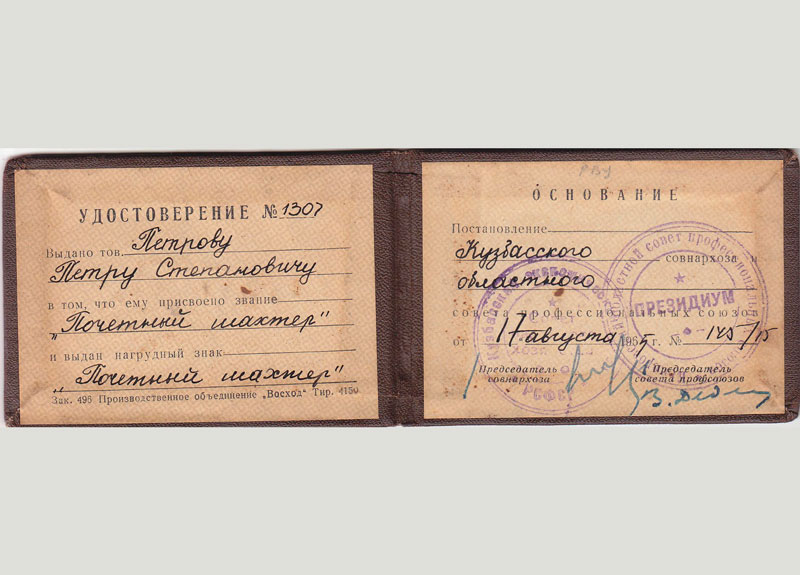 УДОСТОВЕРЕНИЕ № 1307
Выдано тов. Петрову
Петру Степановичу
в том, что ему присвоено звание
"Почетный шахтер"
и выдан нагрудный знак
"Почетный шахтер"
Зак. 496 Производственное объединение „Восход" Тир. 4150
ОСНОВАНИЕ
Постановление
Кузбасского совнархоза и
областного
совета профессиональных союзов
от 17 августа г. № 145/15
Председатель совнархоза
Председатель совета профсоюзов
ПРЕЗИДИУМ
РСФСР